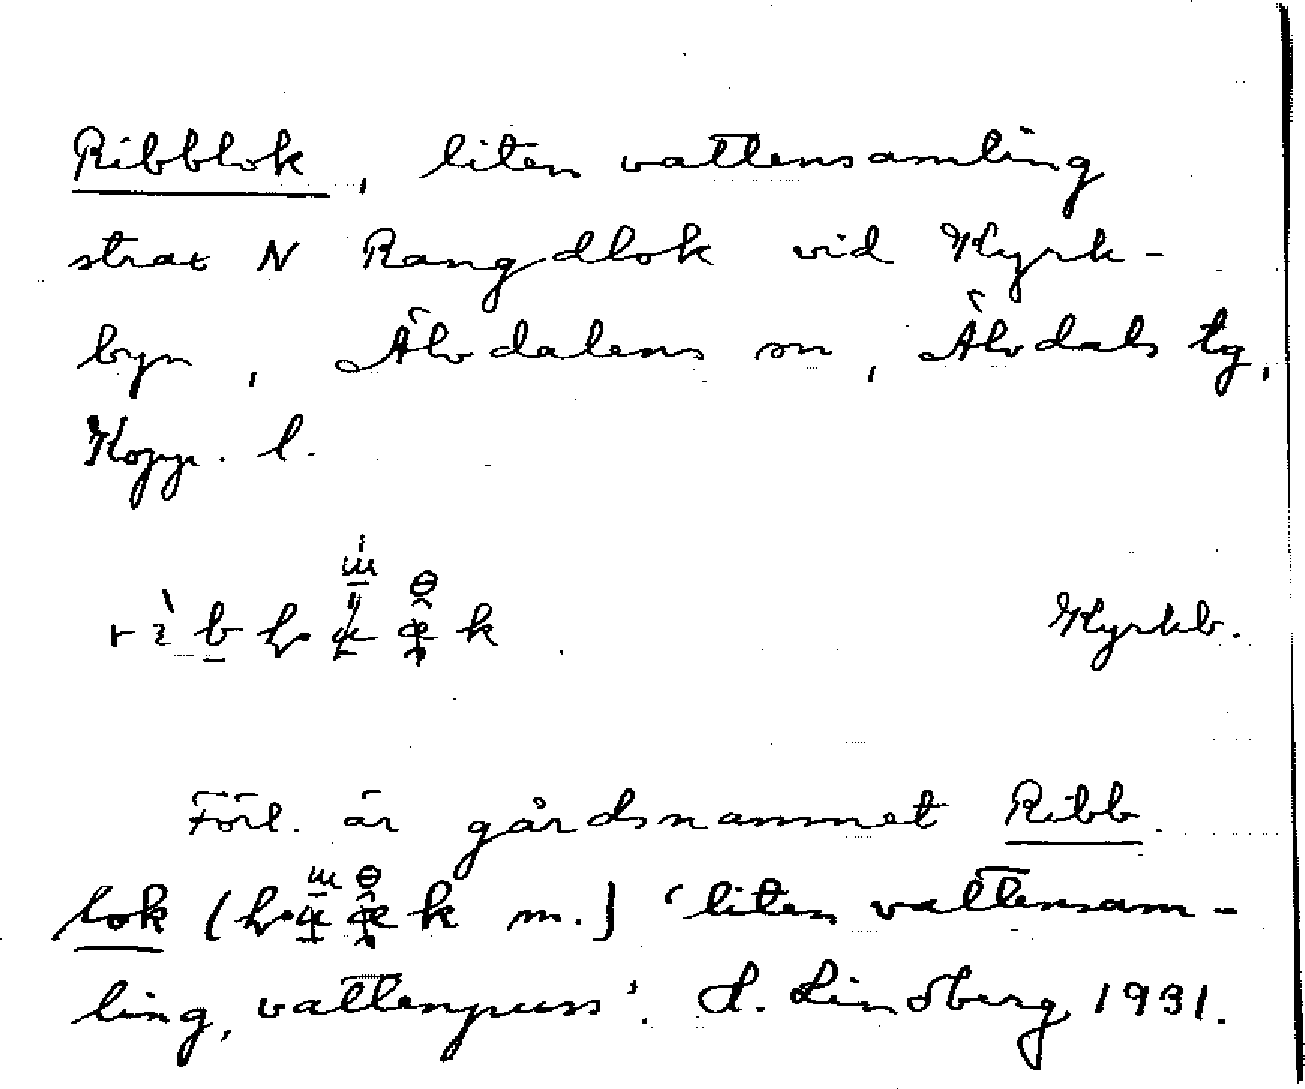 Ribblok, liten vattensamling
strax N Rangdlok vid Kyrk-
byn, Älvdalens sn, Älvdals tg,
Kopp. l.
Kyrkb.
Förl. är gårdsnamnet Ribb.
lok (k m.) 'liten vattensam-
ling, vattenpuss'. L. Lindberg 1931.